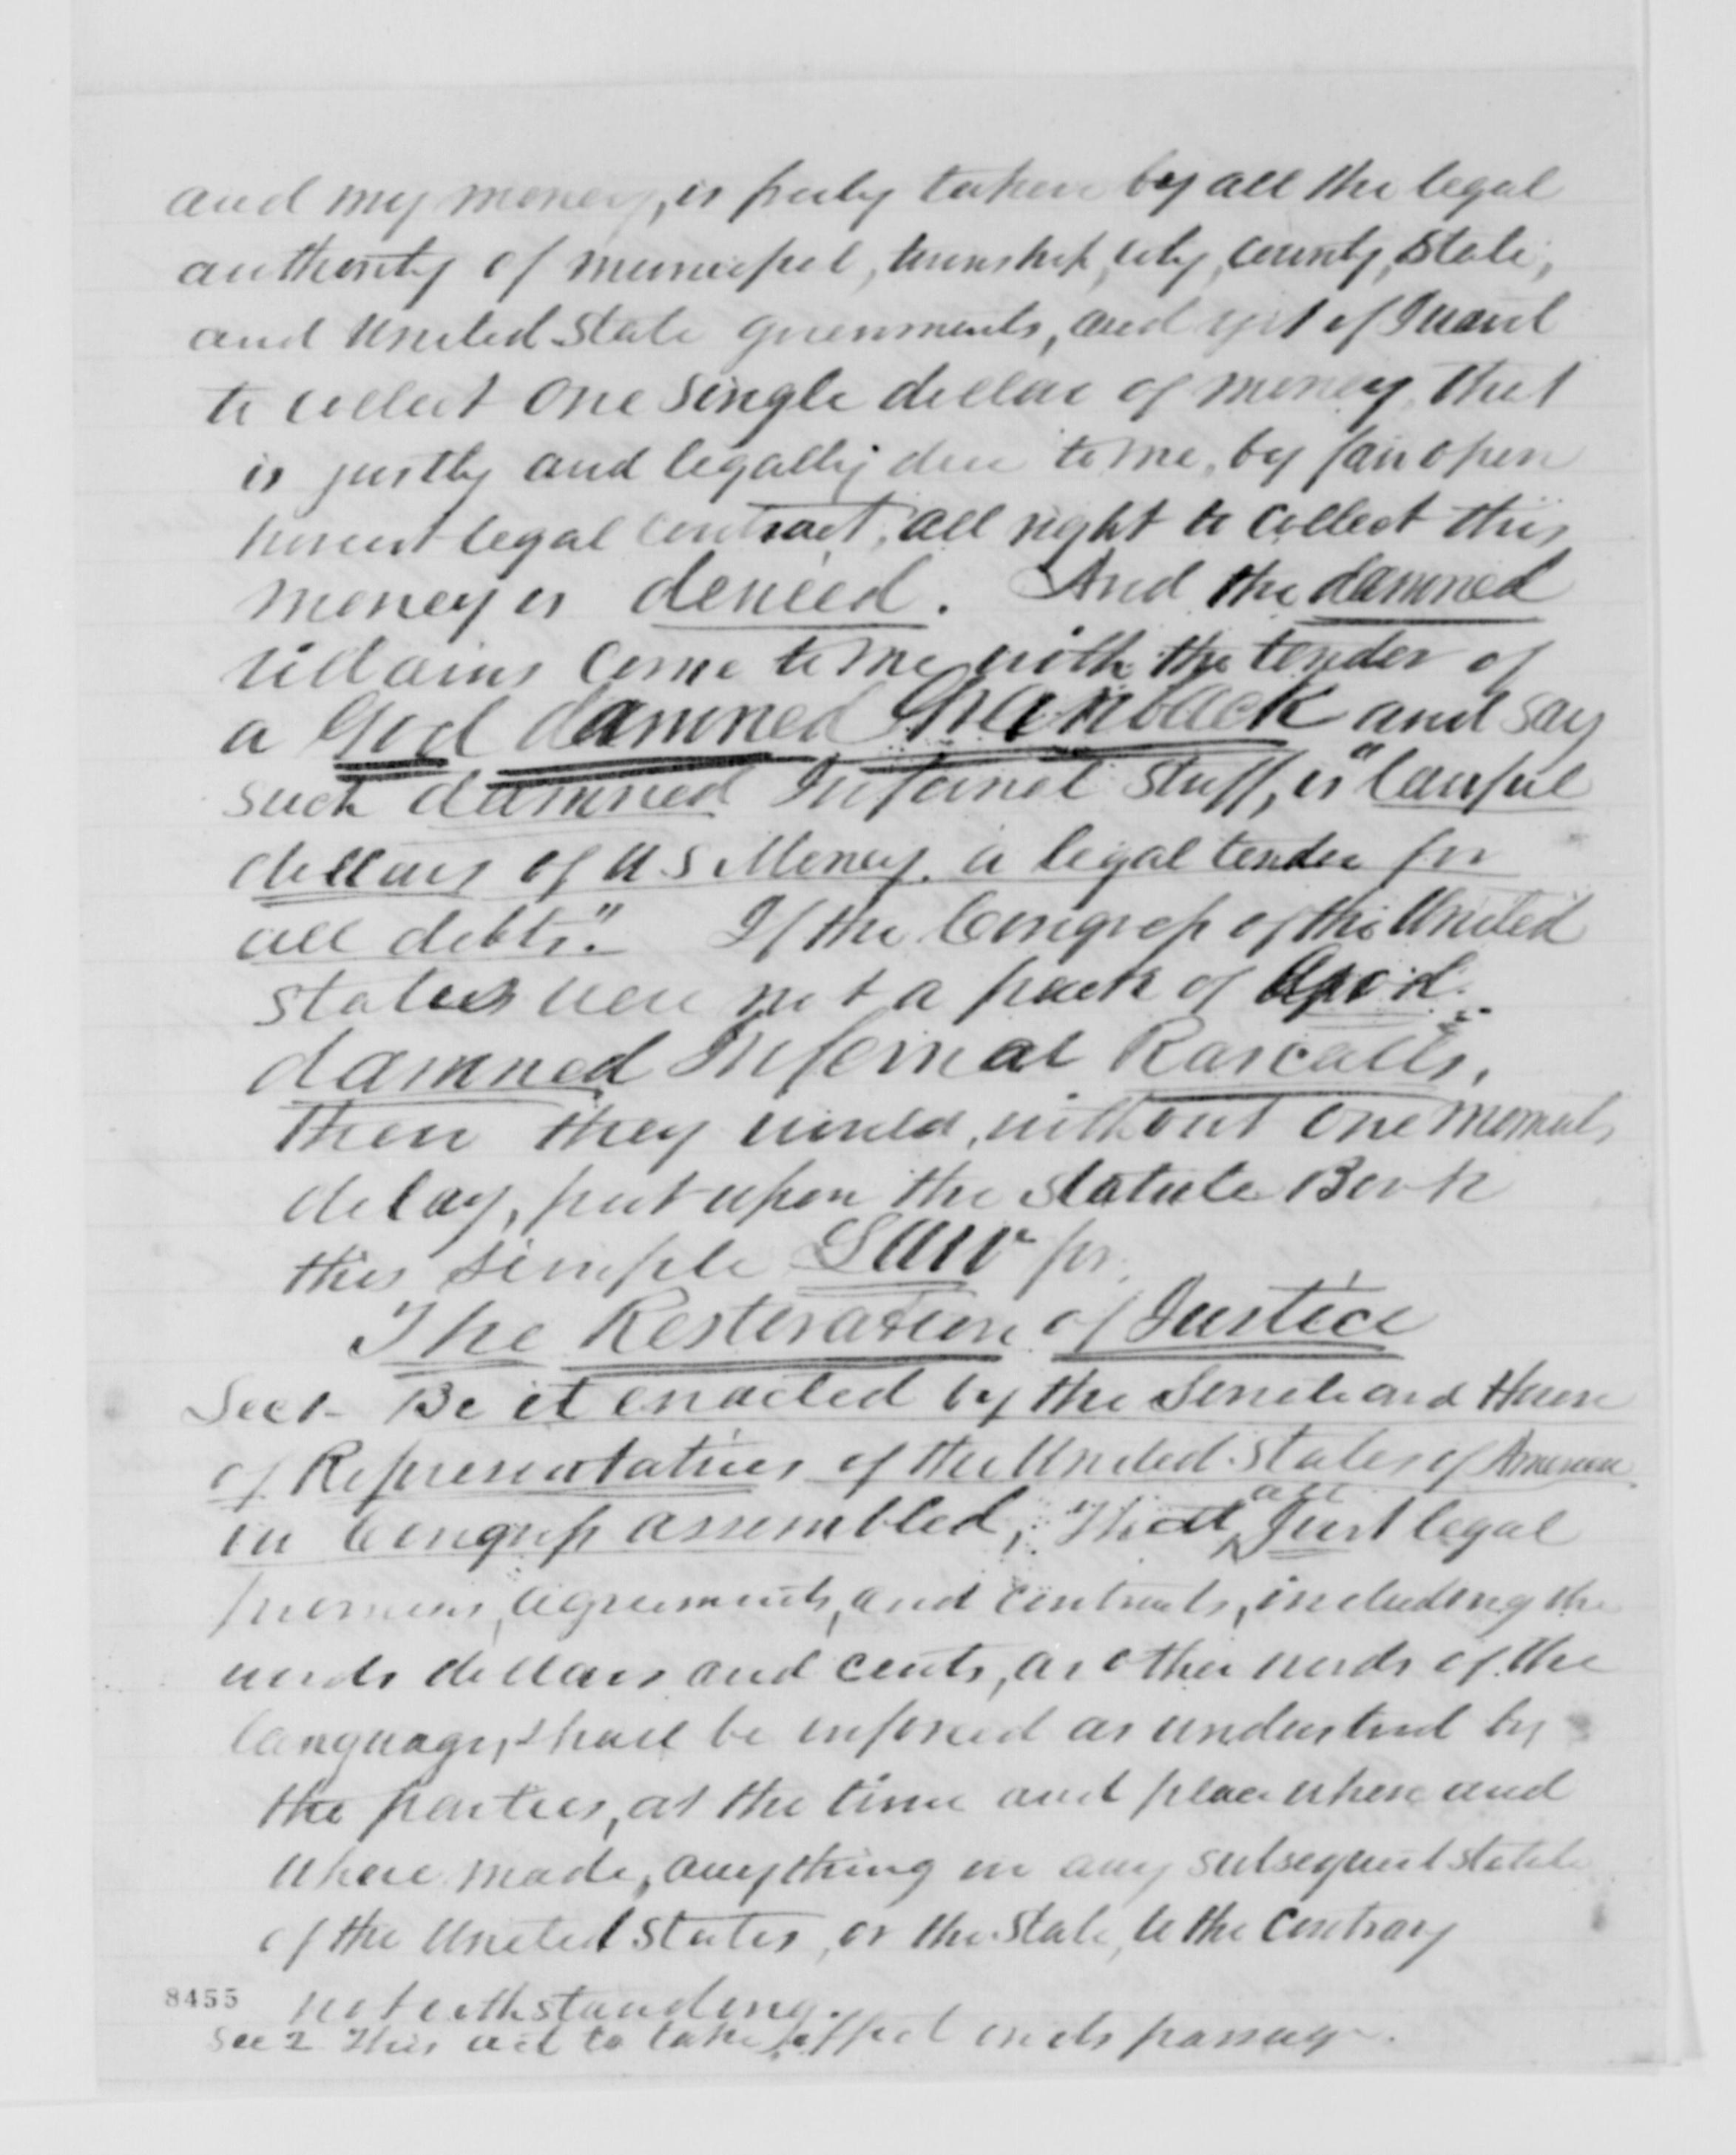 and my money, is freely taken by all the legal
authority of municipal, township, city, county, State,
and United State governments, and yet if I want
to collect One Single dollar of money, that
is justly and legally due to me, by fair open
honest legal contract, all right to collect this
money is denied. And the damned
villains come to me with the tender of
a God damned Greenback and say
such damned Infernal Stuff, is "lawful
dollars of U S Money. a legal tender for
all debts." If the Congress of the United
States were not a pack of God
damned Infernal Rascalls,
then they would, without one moments
delay, put upon the Statute Book
this simple Law for
The Restoration of Justice
Sec 1- Be it enacted by the Senate and House
of Representatives of the United States of America
in Congress assembled, That all Just legal
promises, agreements, and contracts, including the
words dollars and cents, as other words of the
language, shall be enforced as understood by
the parties, at the time and place when and
where made, anything in any subsequent statute
of the United States, or the State, to the contrary
notwithstanding.
8455
Sec 2 This act to take effect on its passage.